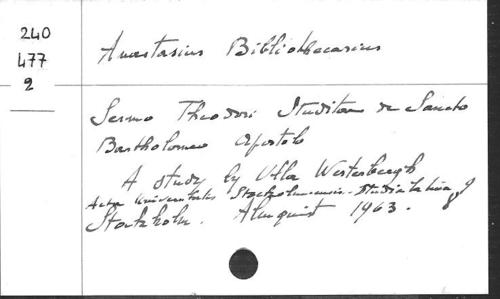 240
477
2
Anastasius Bibliothecarius
Sermo Theodori Studitae de Sancto
Bartholomeo Apostolo
A study by Ulla Westerbergh
Acta Universitatis Stockholmiensis. Studia Latina
Stockholm. Almquist 1963.